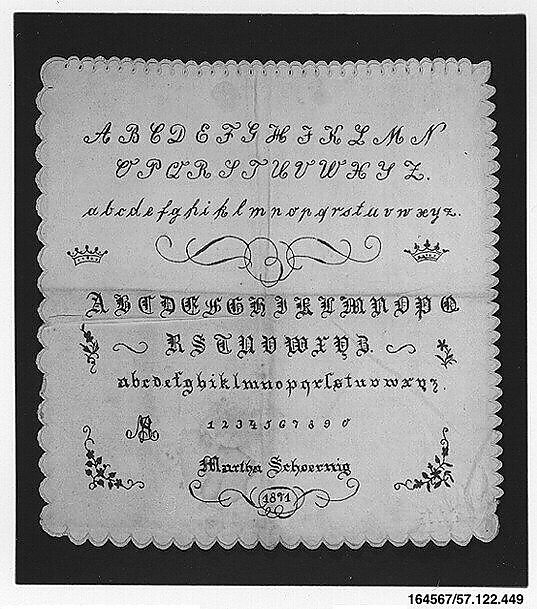 A B C D E F G H I K L M N
O P Q R S T U V W X Y Z.
a b c d e f g h i k l m n o p q r s t u v w x y z.
A B C D E F G H I K L M N O P Q
R S T U V W X Y Z.
a b c d e f g h i k l m n o p q r ſ s t u v w x y z.
1 2 3 4 5 6 7 8 9 0
Martha Schoernig
1871
164567/57.122.449